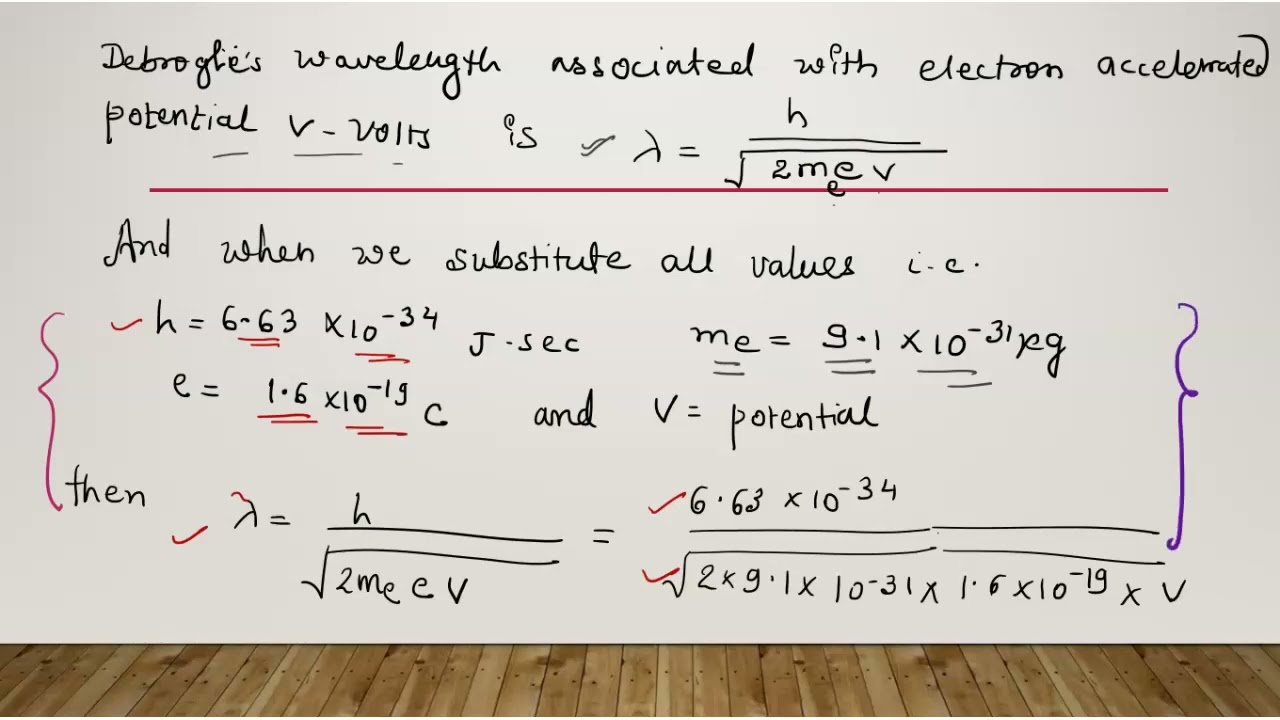 Debroglie's wavelength associated with electron accelerated
potential V-volts is λ = h / √2mₑeV
And when we substitute all values i.e.
h = 6.63 × 10⁻³⁴ J.sec mₑ = 9.1 × 10⁻³¹ kg
e = 1.6 × 10⁻¹⁹ C and V = potential
then λ = h / √2mₑeV = 6.63 × 10⁻³⁴ / √2×9.1×10⁻³¹×1.6×10⁻¹⁹×V